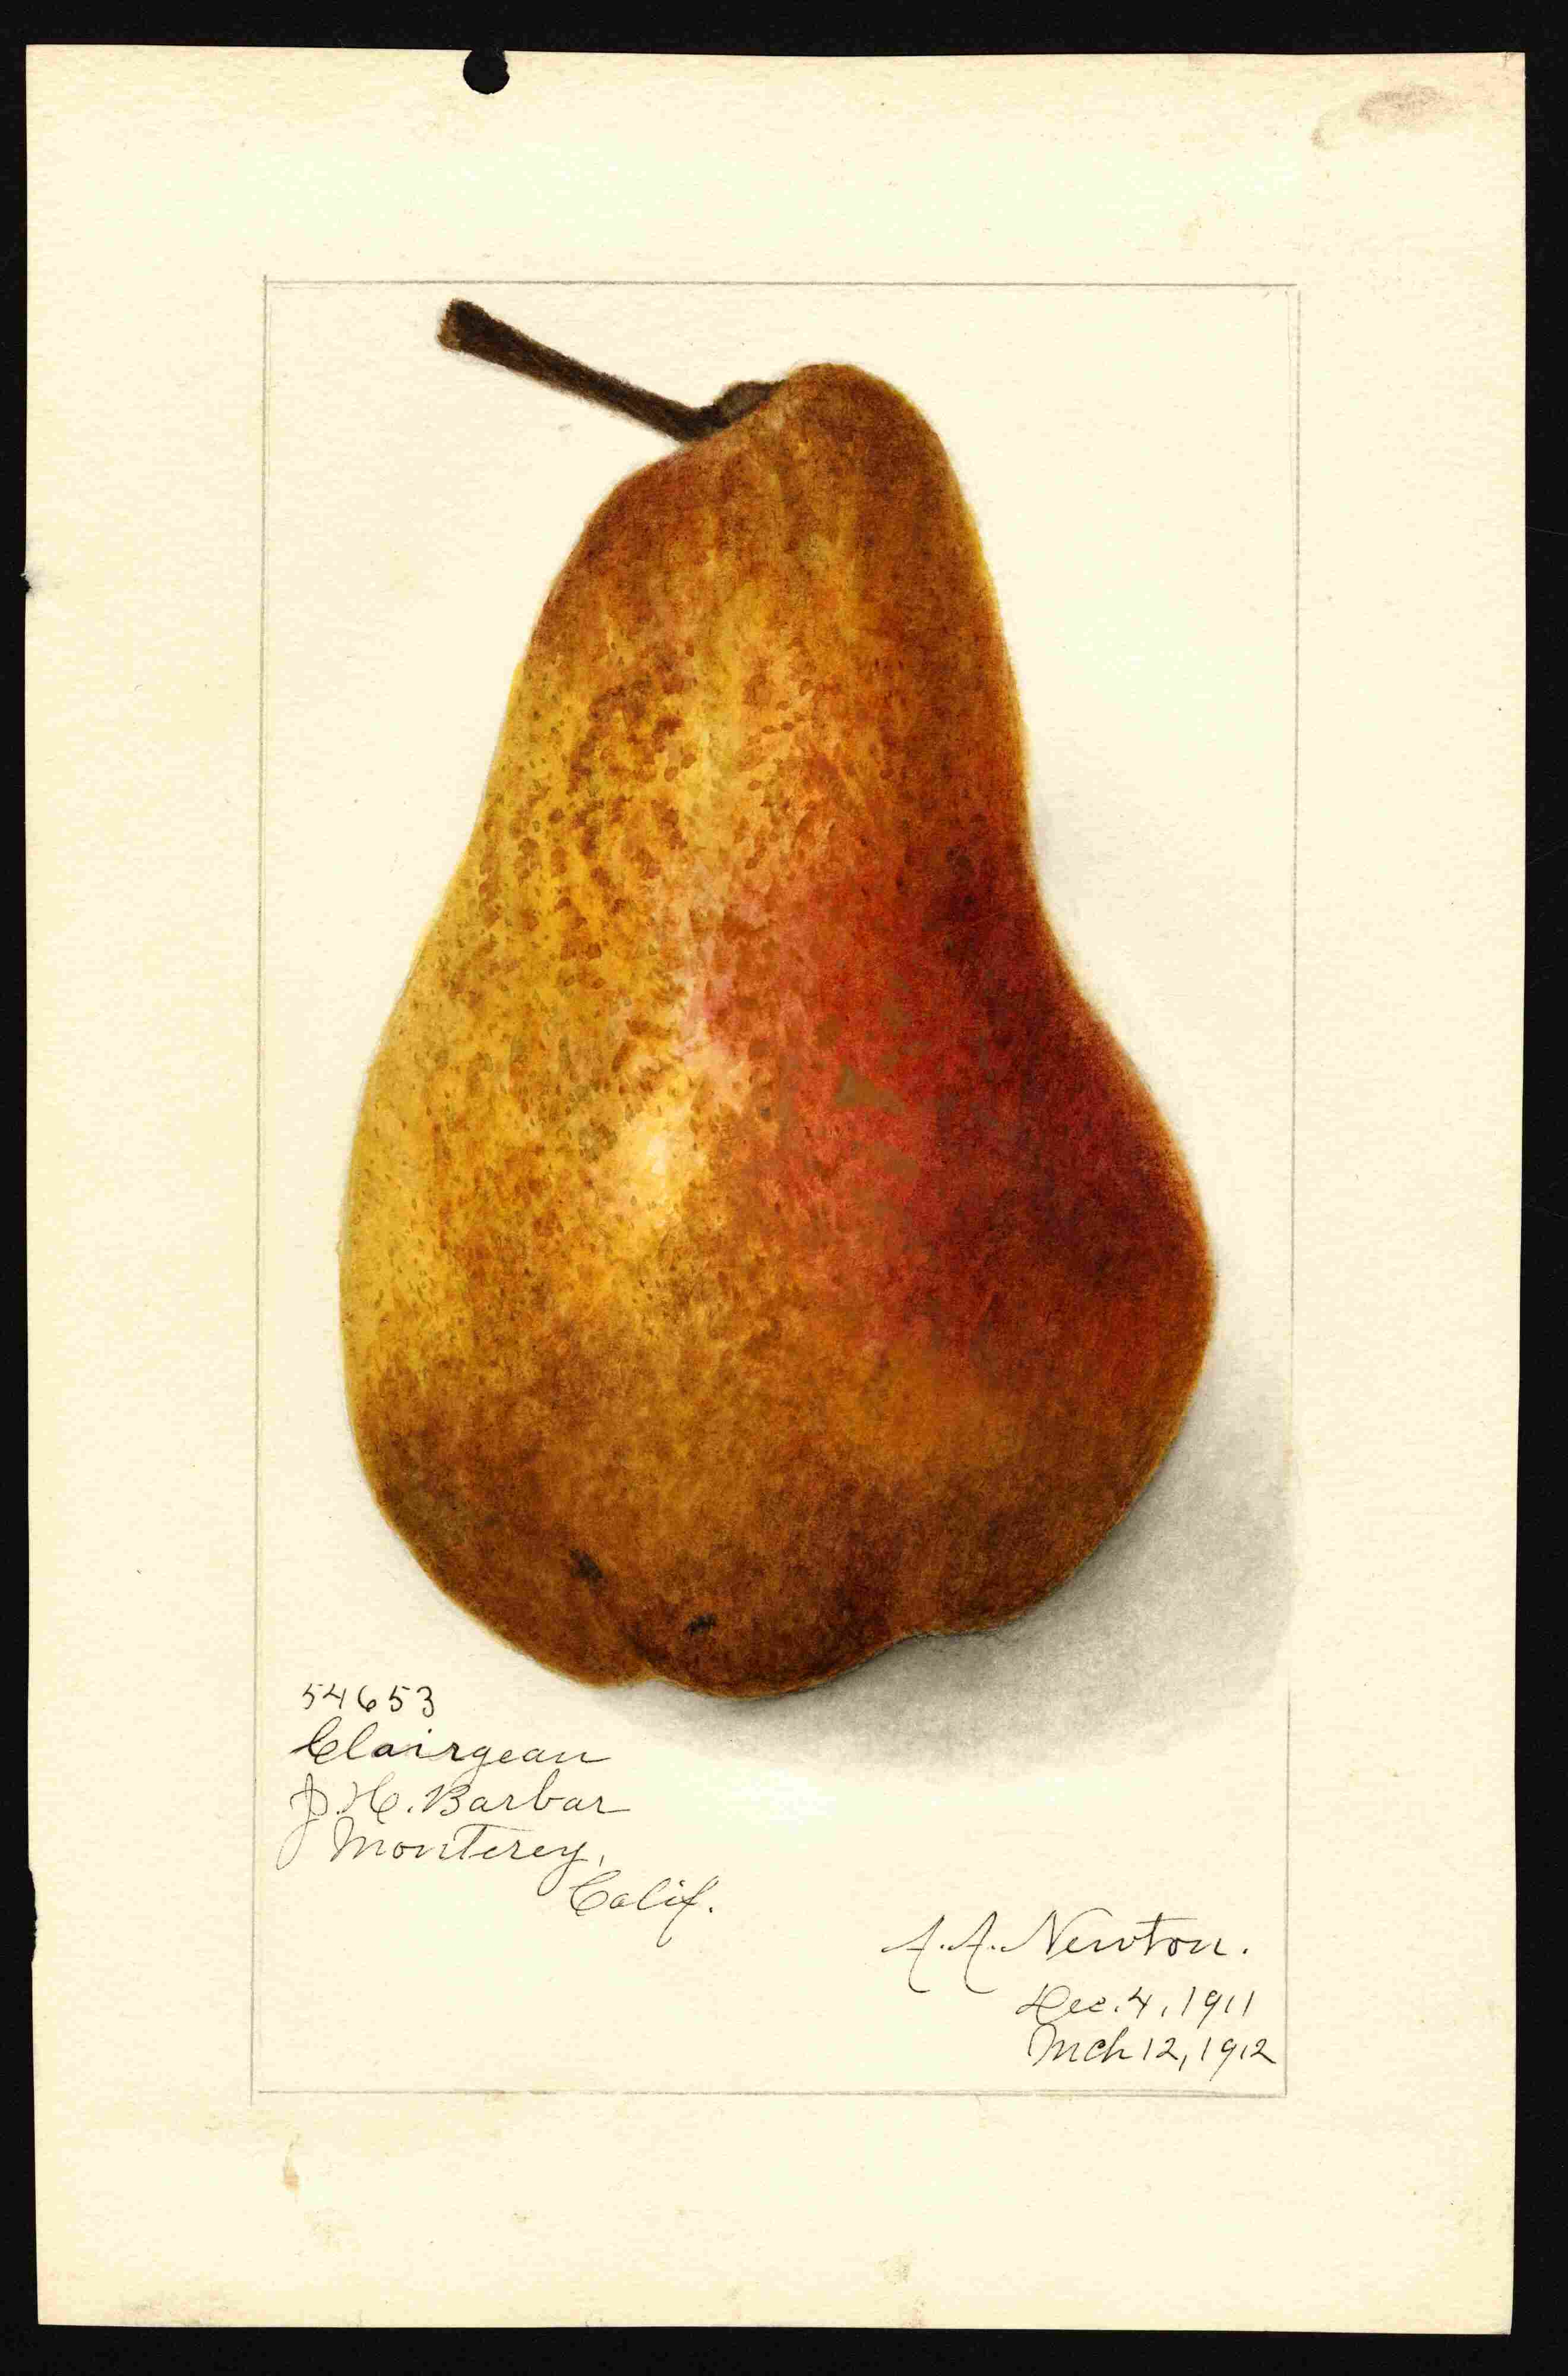 54653
Clairgeau
J. H. Barbar
Monterey,
Calif.
A. A. Newton.
Dec. 4, 1911
Mch 12, 1912